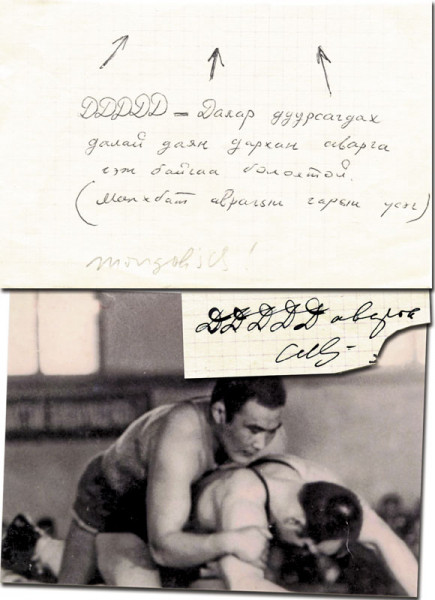 ДДДДД – Даяар дуурсагдах
далай даян дархан аварга
гэж байгаа бололтой.
(Мөнхбат аваргын гарын үсэг)
mongolisch!
ДДДДД аварга